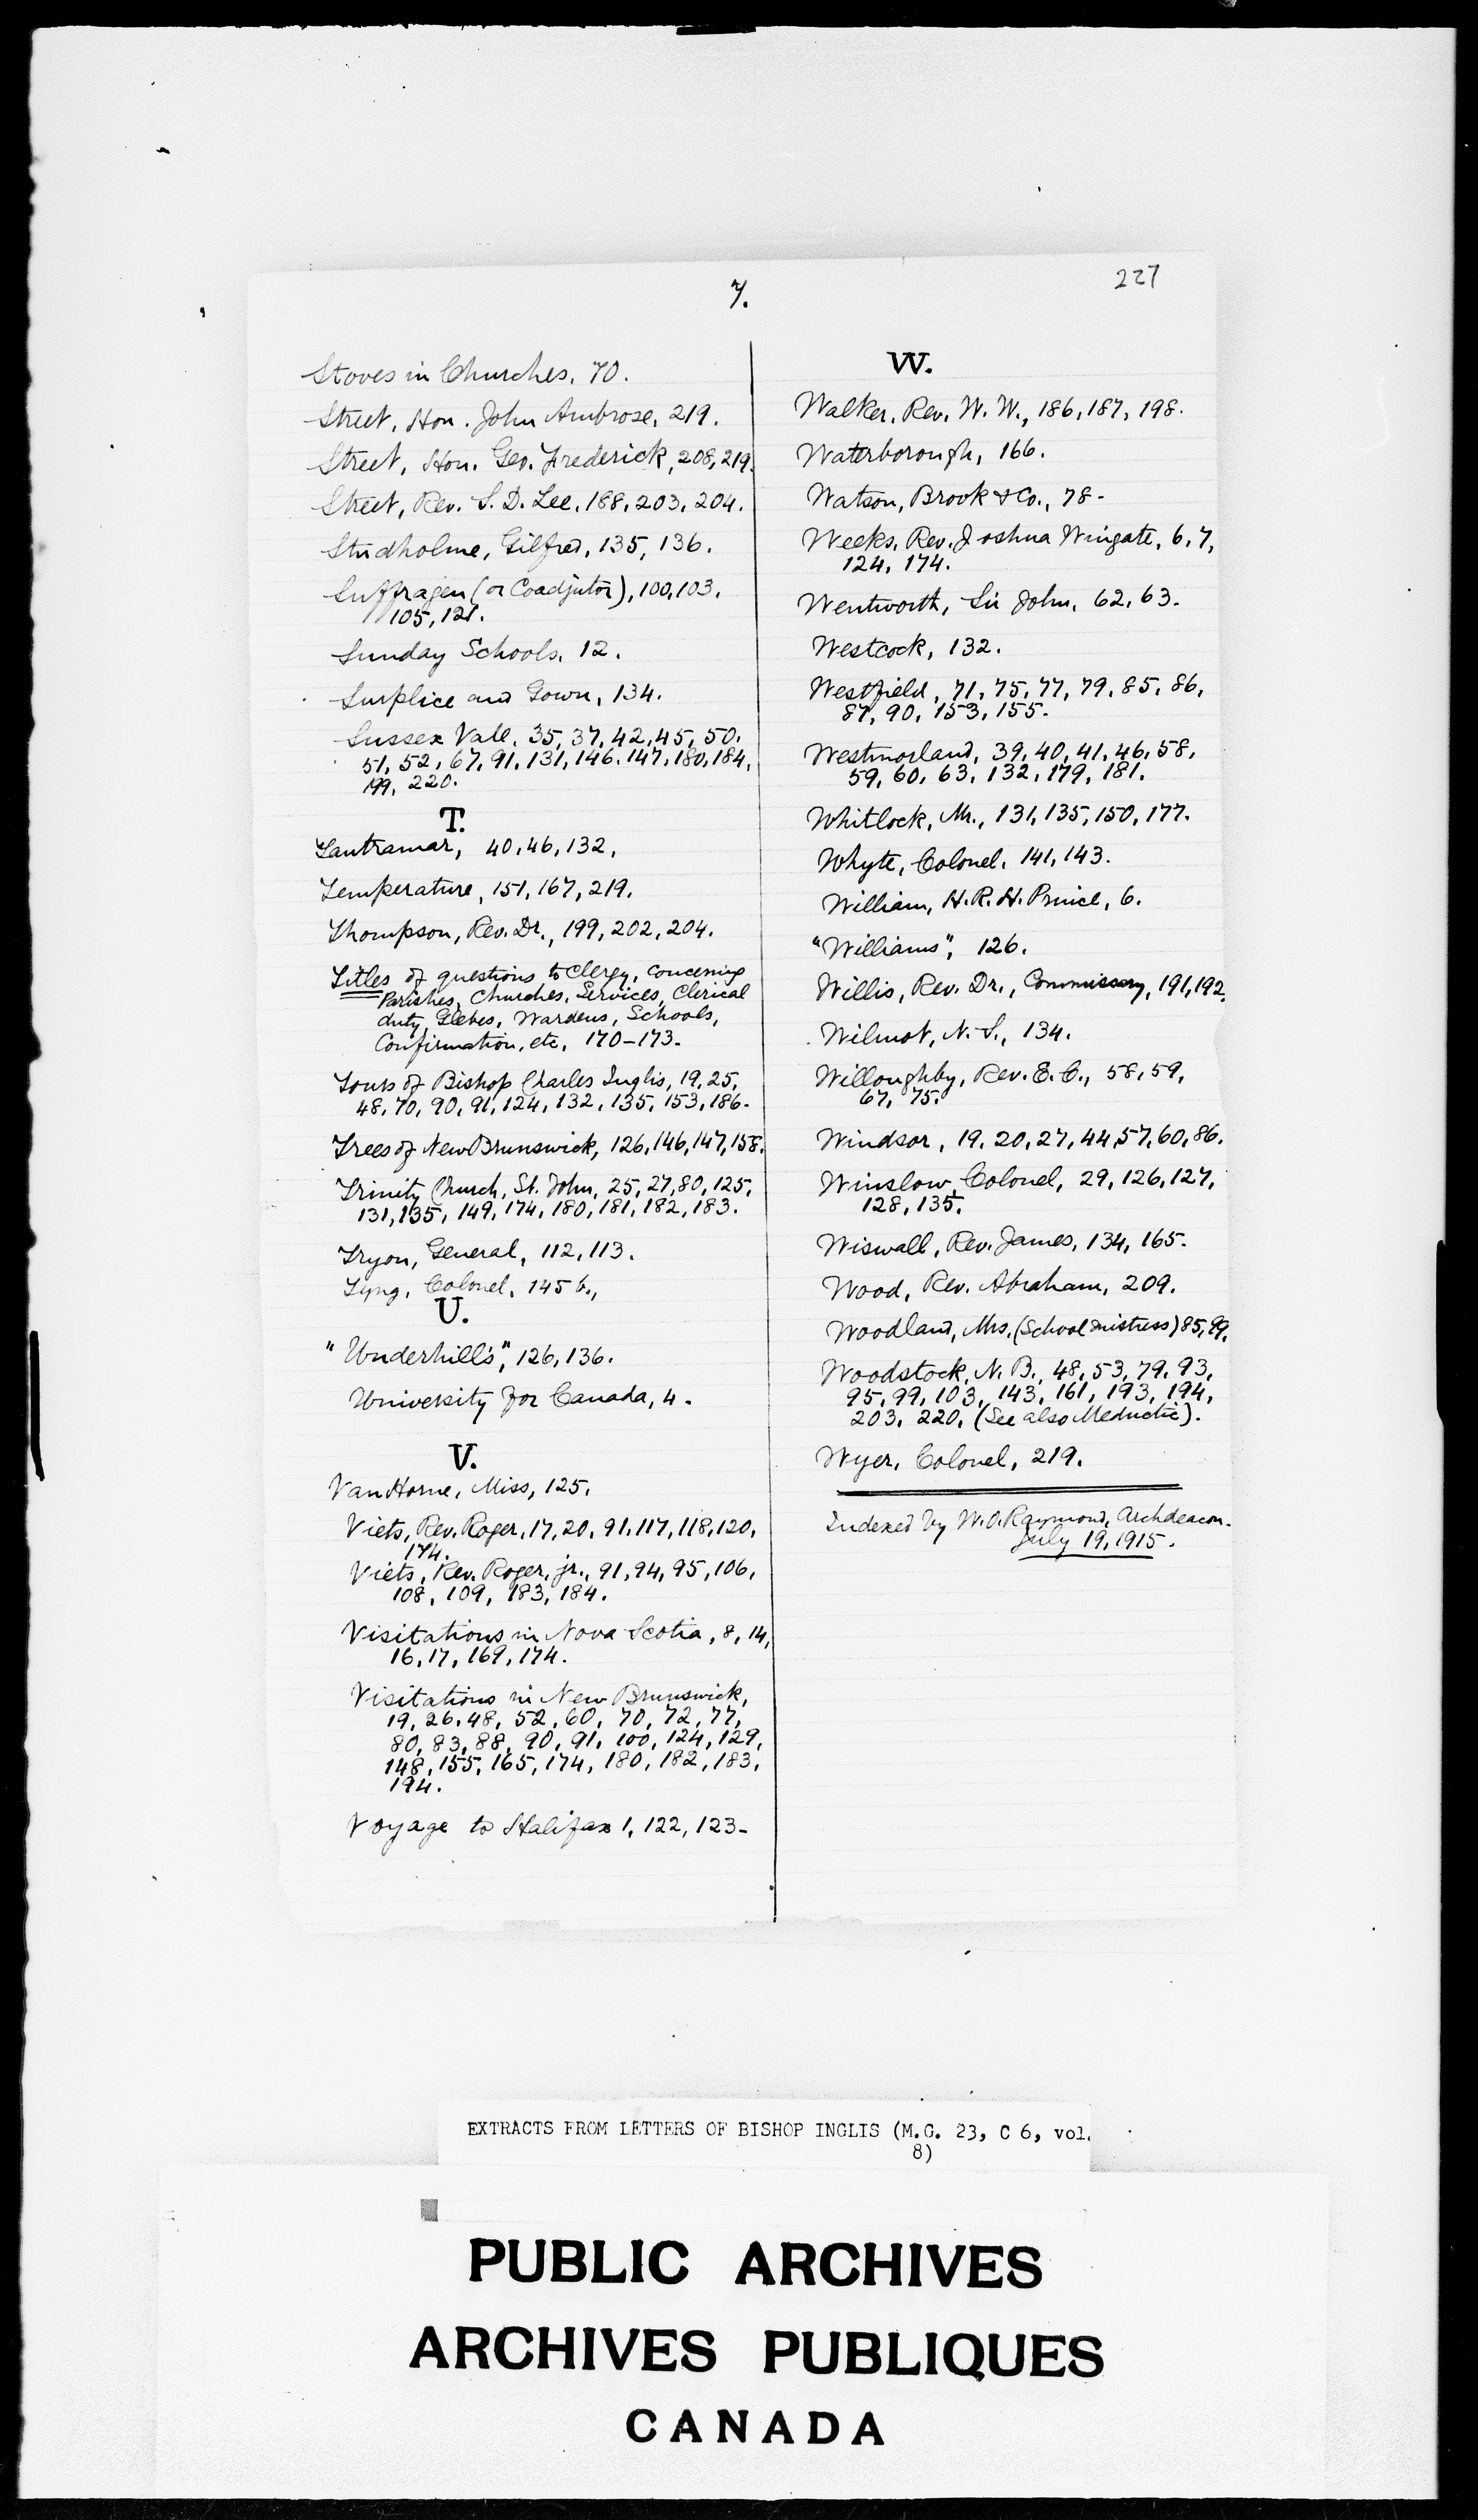 7.
227
Stoves in Churches, 70.
Street, Hon. John Ambrose, 219.
Street, Hon. Geo. Frederick, 208, 219.
Street, Rev. S. D. Lee, 188, 203, 204.
Studholme, Gilfred, 135, 136.
Suffragen (or Coadjutor), 100, 103,
105, 121.
Sunday Schools, 12.
Surplice and Gown, 134.
Sussex Vale, 35, 37, 42, 45, 50,
51, 52, 67, 91, 131, 146, 147, 180, 184,
199, 220.
T.
Tantramar, 40, 46, 132,
Temperature, 151, 167, 219.
Thompson, Rev. Dr., 199, 202, 204.
Titles of questions to Clergy, concerning
Parishes, Churches, Services, Clerical
duty, Glebes, Wardens, Schools,
Confirmation, etc, 170-173.
Tours of Bishop Charles Inglis, 19, 25,
48, 70, 90, 91, 124, 132, 135, 153, 186.
Trees of New Brunswick, 126, 146, 147, 158.
Trinity Church, St. John, 25, 27, 80, 125,
131, 135, 149, 174, 180, 181, 182, 183.
Tryon, General, 112, 113.
Tyng, Colonel, 145 b.,
U.
"Underhill's", 126, 136.
University for Canada, 4.
V.
Van Horne, Miss, 125,
Viets, Rev. Roger, 17, 20, 91, 117, 118, 120,
174.
Viets, Rev. Roger, jr., 91, 94, 95, 106,
108, 109, 183, 184.
Visitations in Nova Scotia, 8, 14,
16, 17, 169, 174.
Visitations in New Brunswick,
19, 26, 48, 52, 60, 70, 72, 77,
80, 83, 88, 90, 91, 100, 124, 129,
148, 155, 165, 174, 180, 182, 183,
194.
Voyage to Halifax 1, 122, 123-
W.
Walker, Rev. W. W., 186, 187, 198.
Waterborough, 166.
Watson, Brook & Co., 78-
Weeks, Rev. Joshua Wingate, 6, 7,
124, 174.
Wentworth, Sir John, 62, 63.
Westcock, 132.
Westfield, 71, 75, 77, 79, 85, 86,
87, 90, 153, 155.
Westmorland, 39, 40, 41, 46, 58,
59, 60, 63, 132, 179, 181.
Whitlock, Mr., 131, 135, 150, 177.
Whyte, Colonel, 141, 143.
William, H. R. H. Prince, 6.
"Williams", 126.
Willis, Rev. Dr., Commissary, 191, 192.
Wilmot, N. S., 134.
Willoughby, Rev. E. C., 58, 59,
67, 75.
Windsor, 19, 20, 27, 44, 57, 60, 86.
Winslow Colonel, 29, 126, 127,
128, 135.
Wiswall, Rev. James, 134, 165.
Wood, Rev. Abraham, 209.
Woodland, Mrs. (School Mistress) 85, 99.
Woodstock, N. B., 48, 53, 79, 93,
95, 99, 103, 143, 161, 193, 194,
203, 220, (See also Meductic).
Wyer, Colonel, 219.
Indexed by W. O. Raymond, Archdeacon.
July 19, 1915.
EXTRACTS FROM LETTERS OF BISHOP INGLIS (M.G. 23, C 6, vol.
8)
PUBLIC ARCHIVES
ARCHIVES PUBLIQUES
CANADA